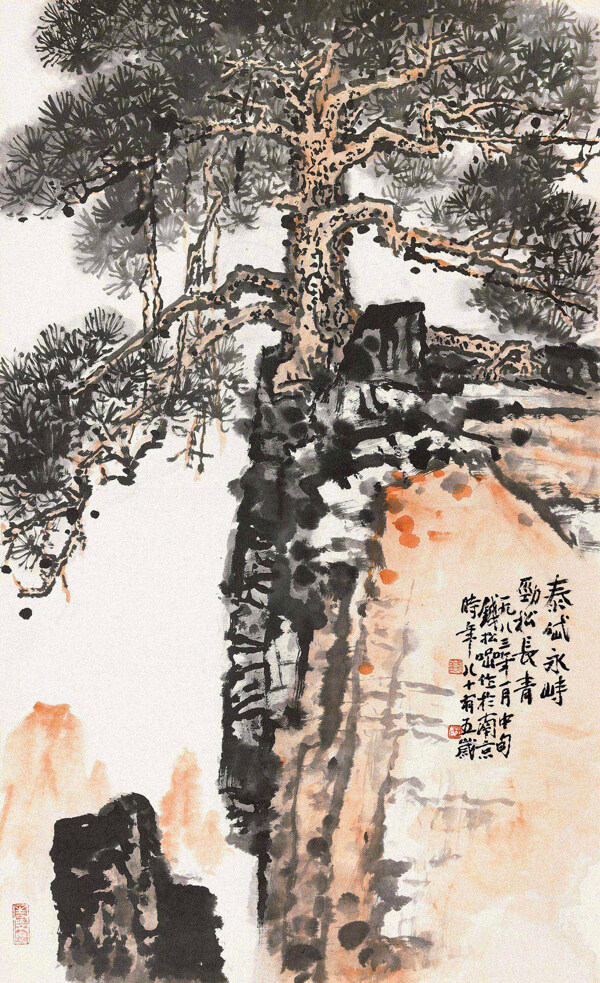 泰岱永峙
勁松長青
一九八三年一月中旬
錢松喦作於南京
時年八十有五歲